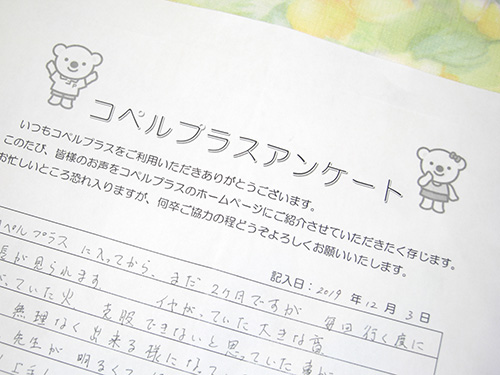 コペルプラスアンケート
いつもコペルプラスをご利用いただきありがとうございます。
このたび、皆様のお声をコペルプラスのホームページにご紹介させていただきたく存じます。
お忙しいところ恐れ入りますが、何卒ご協力の程どうぞよろしくお願いいたします。
記入日：2019 年 12 月 3 日
コペルプラスに入ってから、まだ2ヶ月ですが 毎回行く度に
が見られます。 イヤがっていた大きな音
っていた火 克服できないと思っていた事が
無理なく出来る様になって
先生が明るくて